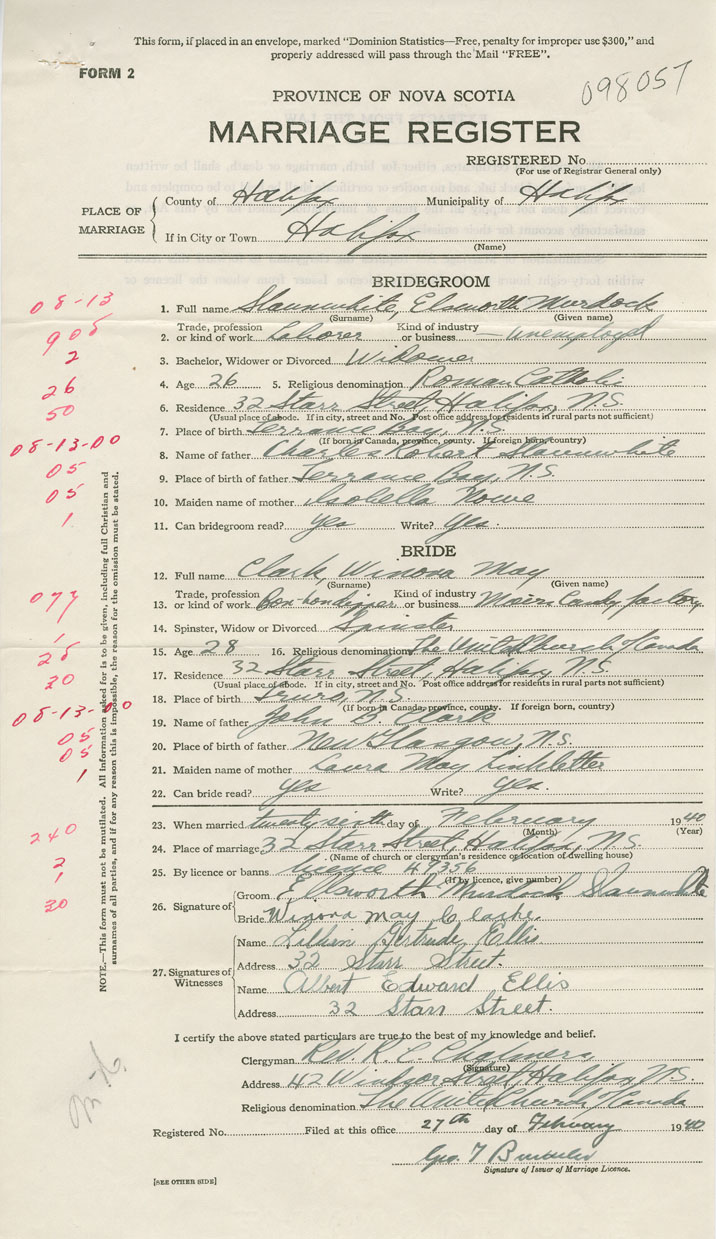 This form, if placed in an envelope, marked "Dominion Statistics—Free, penalty for improper use $300," and
properly addressed will pass through the Mail "FREE".
FORM 2
098057
PROVINCE OF NOVA SCOTIA
MARRIAGE REGISTER
REGISTERED No.
(For use of Registrar General only)
PLACE OF MARRIAGE
County of Halifax Municipality of Halifax
If in City or Town Halifax
(Name)
BRIDEGROOM
08-13
1. Full name Slaunwhite, Elsworth Murdock
(Surname) (Given name)
908
2. Trade, profession or kind of work Laborer Kind of industry or business — unemployed
2
3. Bachelor, Widower or Divorced Widower
26
4. Age 26 5. Religious denomination Roman Catholic
50
6. Residence 32 Starr Street, Halifax, N.S.
(Usual place of abode. If in city, street and No. Post office address for residents in rural parts not sufficient)
08-13-00
7. Place of birth Terrance Bay, N.S.
(If born in Canada, province, county. If foreign born, country)
8. Name of father Charles Robert Slaunwhite
05
9. Place of birth of father Terrance Bay, N.S.
05
10. Maiden name of mother Isobella Nowe
1
11. Can bridegroom read? yes Write? yes.
BRIDE
12. Full name Clark, Winora May
(Surname) (Given name)
077
13. Trade, profession or kind of work Kind of industry or business Moirs Candy factory
1
14. Spinster, Widow or Divorced Spinster
28
15. Age 28 16. Religious denomination The United Church of Canada
20
17. Residence 32 Starr Street, Halifax, N.S.
(Usual place of abode. If in city, street and No. Post office address for residents in rural parts not sufficient)
08-13-00
18. Place of birth Truro, N.S.
(If born in Canada, province, county. If foreign born, country)
19. Name of father John B. Clark
05
20. Place of birth of father New Glasgow, N.S.
05
21. Maiden name of mother Laura May Linkletter
1
22. Can bride read? yes Write? yes.
23. When married twenty sixth day of February 1940
(Month) (Year)
240
24. Place of marriage 32 Starr Street, Halifax, N.S.
(Name of church or clergyman's residence or location of dwelling house)
2
25. By licence or banns licence 47356
(If by licence, give number)
1
26. Signature of
Groom Ellsworth Murdock Slaunwhite
20
Bride Winora may Clarke.
27. Signatures of Witnesses
Name Lillian Gertrude Ellis
Address 32 Starr Street.
Name Albert Edward Ellis
Address 32 Starr Street.
NOTE.—This form must not be mutilated. All information asked for is to be given, including full Christian and
surnames of all parties, and if for any reason this is impossible, the reason for the omission must be stated.
I certify the above stated particulars are true to the best of my knowledge and belief.
Clergyman Rev. R. C. Chalmers
(Signature)
Address 42 Windsor Street, Halifax, N.S.
Religious denomination The United Church of Canada
Registered No. Filed at this office 27th day of February 1940
Geo. T
Signature of Issuer of Marriage Licence.
[SEE OTHER SIDE]